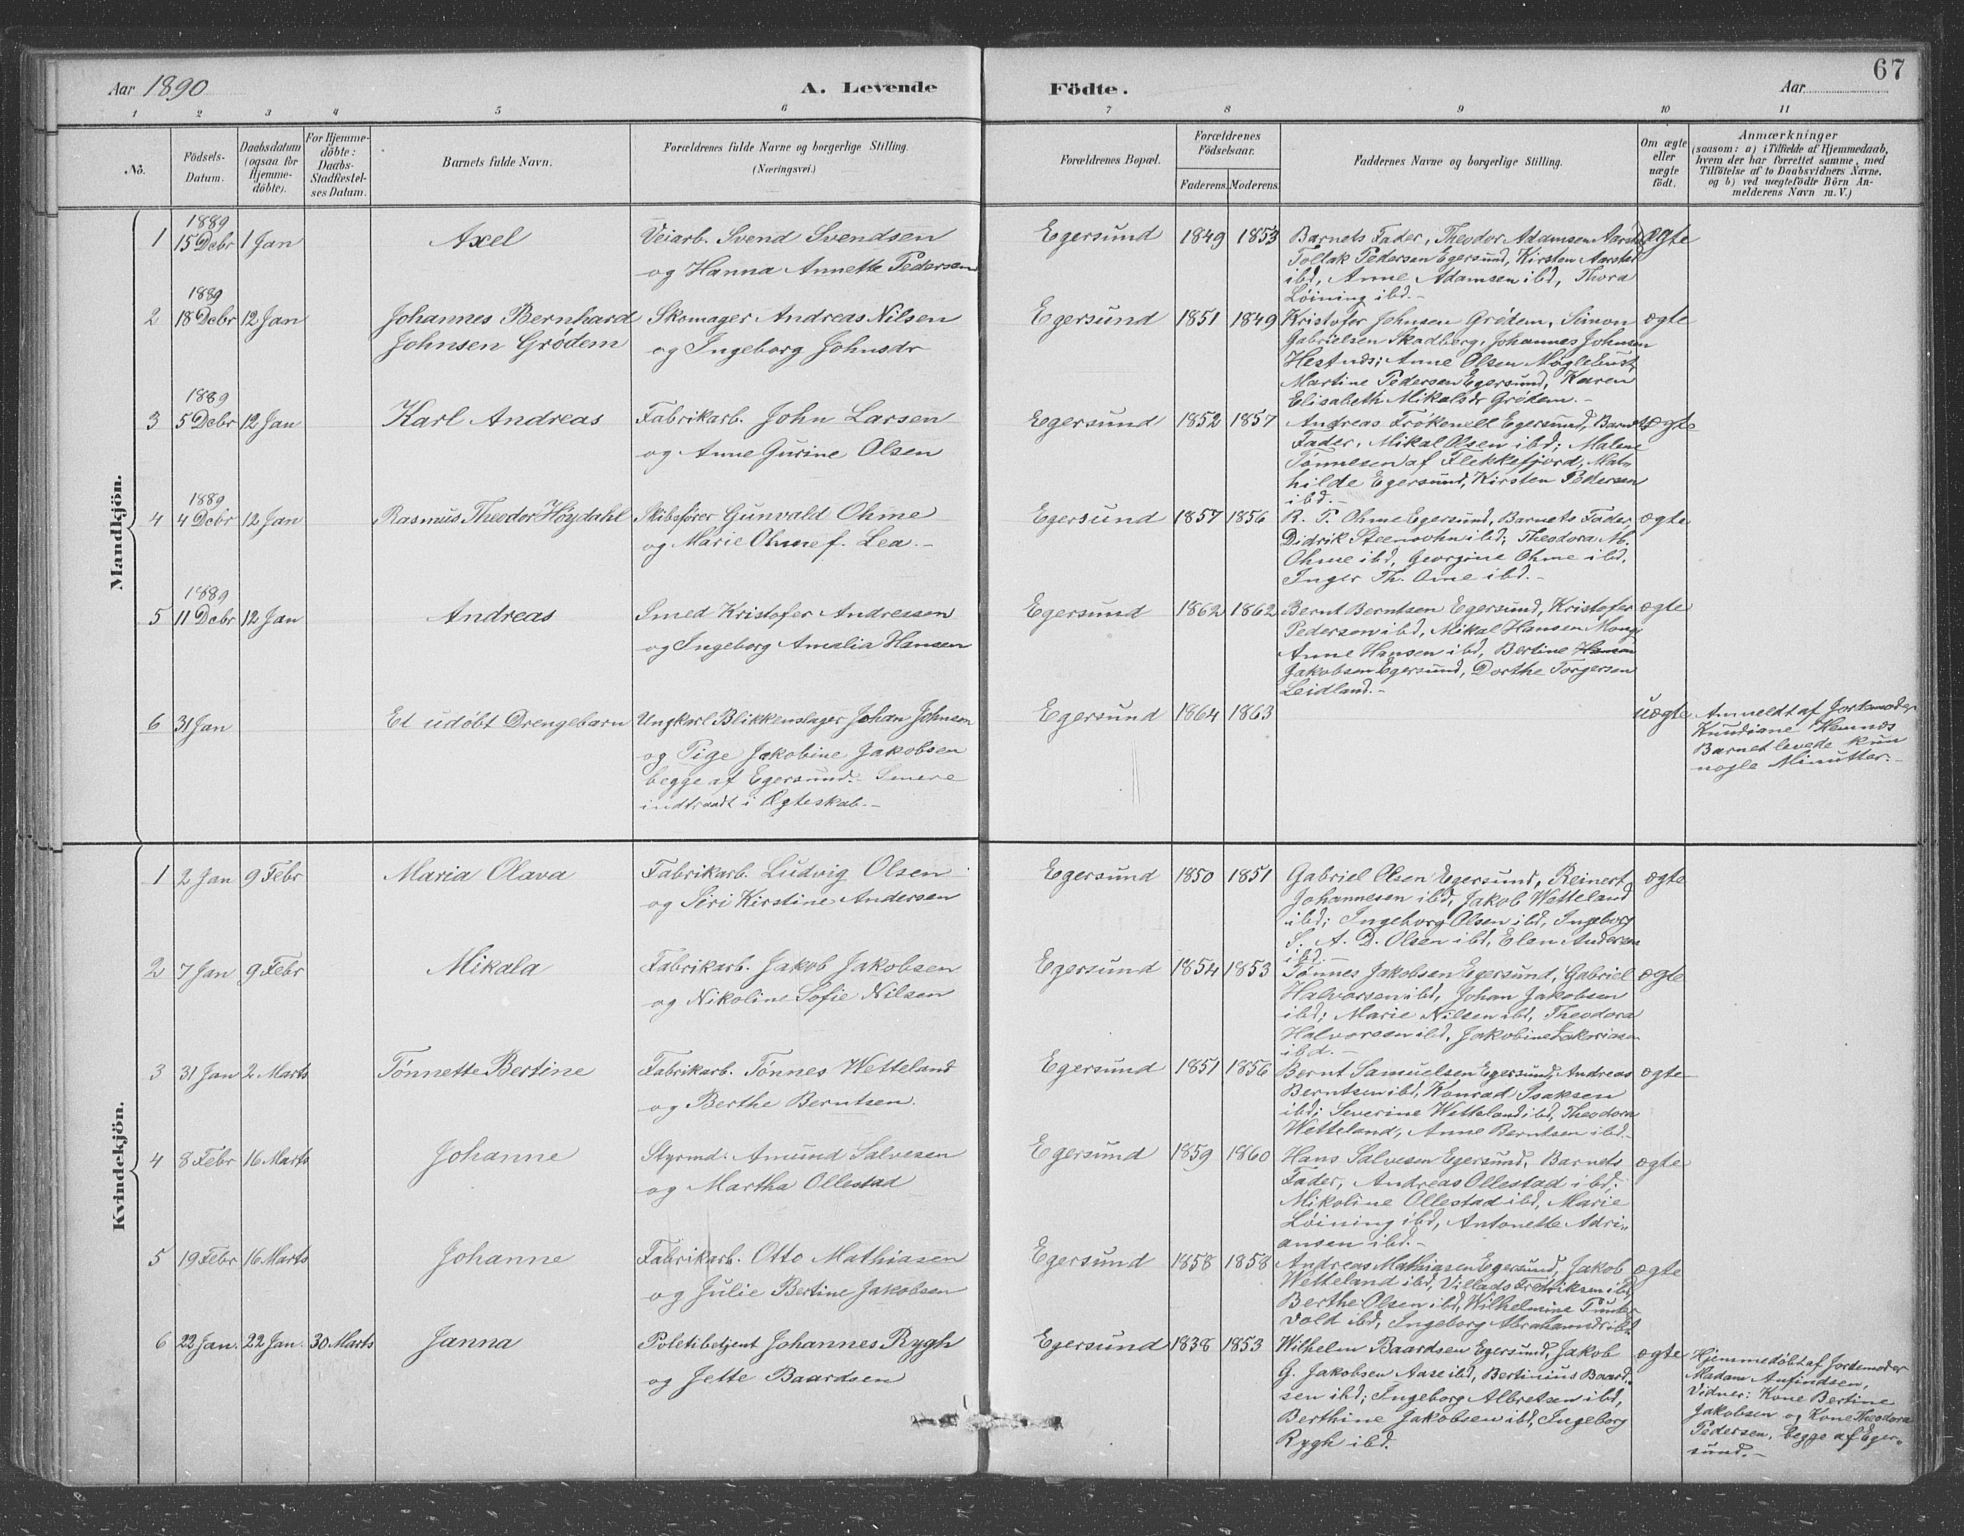 67
Aar 1890 A. Levende Födte. Aar
1 2 3 4 5 6 7 8 9 10 11
No. Födsels-Datum. Daabsdatum (ogsaa för Hjemme-döbte). For Hjemme-döbte: Daabs-Stadfæstel-ses Datum. Barnets fulde Navn. Forældrenes fulde Navne og borgerlige Stilling. (Næringsvei.) Forældrenes Bopæl. Forældrenes Födselsaar. Faderens. Moderens. Faddernes Navne og borgerlige Stilling. Om ægte eller uægte födt. Anmærkninger (saasom: a) i Tilfælde af Hjemmedaab, hvem der har forrettet samme, med Tilföielse af to Daabsvidners Navne, og b) ved uægtefödte Börn An-melderens Navn m. V.)
Mandkjön.
1889
1 15 Debr 1 Jan Axel Veiarb. Svend Svendsen Egersund 1849 1853 Barnets Fader, Theodor Adamsen Aarstad ægte
og Hanna Annette Pedersen Tollak Pedersen Egersund, Kirsten Aarstad
ibd, Anne Adamsen ibd, Thora
Løining ibd.-
1889
2 18 Debr 12 Jan Johannes Bernhard Skomager Andreas Nilsen Egersund 1851 1849 Kristofer Johnsen Grødem, Simon ægte
Johnsen Grødem og Ingeborg Johnsdr Gabrielsen Skadberg, Johannes Johnsen
Hestnes; Anne Olsen Møglebust,
Martine Pedersen Egersund, Karen
Elisabeth Mikalsdr Grødem.-
1889
3 5 Debr 12 Jan Karl Andreas Fabrikarb. John Larsen Egersund 1852 1857 Andreas Frøkenell Egersund, Barnets ægte
og Anne Gurine Olsen Fader, Mikal Olsen ibd; Malene
Tønnesen af Flekkefjord, Mat-
hilde Egersund, Kirsten Pedersen
ibd.-
1889
4 4 Debr 12 Jan Rasmus Theodor Høydahl Skibsfører Gunvald Ohme Egersund 1857 1856 R. P. Ohme Egersund, Barnets Fader, ægte
og Marie Ohme f. Lea.- Didrik Steensohn ibd; Theodora M.
Ohme ibd, Georgine Ohme ibd,
Inger Th. Ome ibd.-
1889
5 11 Debr 12 Jan Andreas Smed Kristofer Andressen Egersund 1862 1862 Bernt Berntsen Egersund, Kristofer ægte
og Ingeborg Amalia Hansen Pedersen ibd, Mikal Hansen Mong;
Anne Hansen ibd, Bertine
Jakobsen Egersund, Dorthe Torgersen
Leidland.-
6 31 Jan Et udøbt Drengebarn Ungkarl Blikkenslager Johan Johnsen Egersund 1864 1863 uægte Anmeldt af Jordemoder
og Pige Jakobine Jakobsen Knudiane Hemnes
begge af Egersund. Senere Barnet levede kun
indtraadt i Ægteskab.- nogle Minutter.-
Kvindekjön.
1 2 Jan 9 Febr Maria Olava Fabrikarb. Ludvig Olsen Egersund 1850 1851 Gabriel Olsen Egersund, Reinert ægte
og Siri Kirstine Andersen Johannesen ibd, Jakob Wetteland
ibd; Ingeborg Olsen ibd, Ingeborg
S. A. D. Olsen ibd, Elen Andersen
ibd.-
2 7 Jan 9 Febr Mikala Fabrikarb. Jakob Jakobsen Egersund 1854 1853 Tønnes Jakobsen Egersund, Gabriel ægte
og Nikoline Sofie Nilsen Halvorsen ibd, Johan Jakobsen
ibd; Marie Nilsen ibd, Theodora
Halvorsen ibd, Jakobine Zakariasen
ibd.-
3 31 Jan 2 Marts Tønnette Bertine Fabrikarb. Tønnes Wetteland Egersund 1851 1856 Bernt Samuelsen Egersund, Andreas ægte
og Berthe Berntsen. Berntsen ibd, Konrad Isaksen
ibd; Severine Wetteland ibd, Theodora
Wetteland, Anne Berntsen ibd.
4 8 Febr 16 Marts Johanne Styrmd. Amund Salvesen Egersund 1859 1860 Hans Salvesen Egersund, Barnets ægte
og Martha Ollestad Fader, Andreas Ollestad ibd;
Mikoline Ollestad ibd, Marie
Løining ibd, Antonette Adri-
ansen ibd.-
5 19 Febr 16 Marts Johanne Fabrikarb. Otto Mathiasen Egersund 1858 1858 Andreas Mathiasen Egersund, Jakob ægte
og Julie Bertine Jakobsen Wetteland ibd, Villads Fredriksen ibd,
Berthe Olsen ibd, Wilhelmine Tunber
vold ibd, Ingeborg Abrahamdr ibd.
6 22 Jan. 22 Jan. 30 Marts Janna Poletibetjent Johannes Rygh Egersund 1838 1853 Wilhelm Baardsen Egersund, Jakob ægte Hjemmedøbt af Jordemoder
og Jette Baardsen G. Jakobsen Aase ibd, Bertinius Baard- Madam Anfindsen,
sen ibd; Ingeborg Albretsen ibd, Vidner: Kone Bertine
Berthine Jakobsen ibd, Ingeborg Jakobsen og Kone Theodora
Rygh ibd. Pedersen, begge af Eger-
sund.-